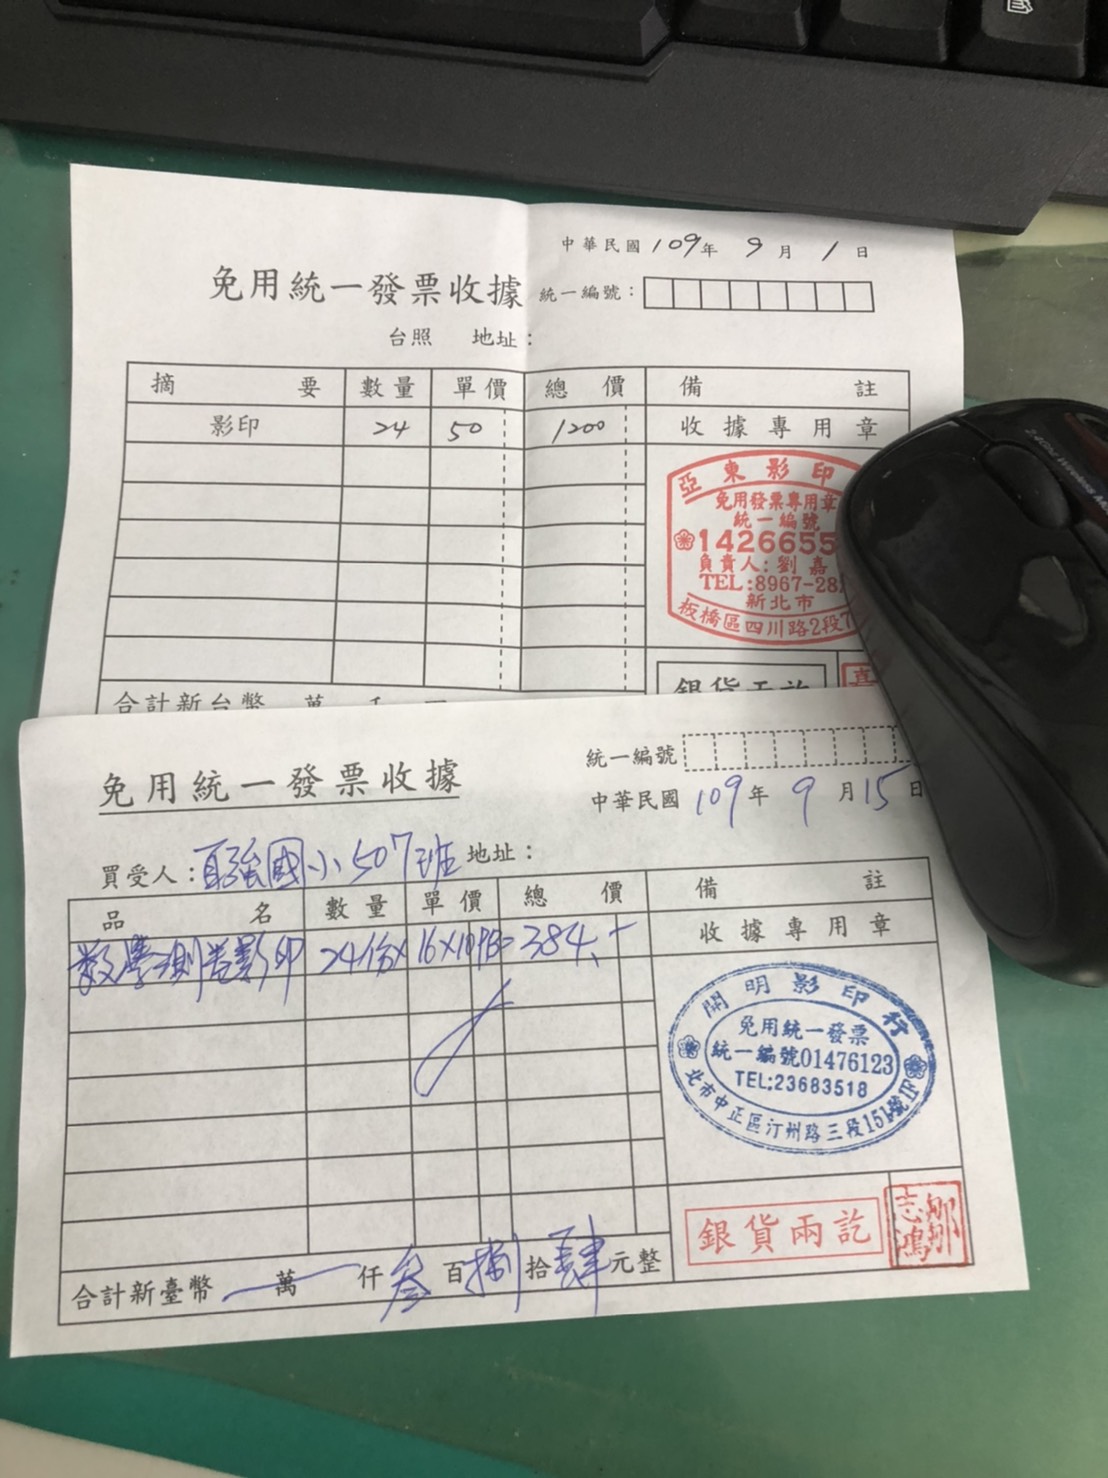 中華民國109年 9月 1日
免用統一發票收據
統一編號：
台照 地址：
摘要 數量 單價 總價 備註
影印 24 50 1200 收據專用章
亞東影印
免用發票專用章
統一編號
1426655
負責人：劉嘉
TEL:8967-28
新北市
板橋區四川路2段7
合計新台幣 萬 千 百
銀貨兩訖
統一編號
免用統一發票收據
中華民國109年 9月15日
買受人：自強國小507班 地址：
品名 數量 單價 總價 備註
數學測卷影印 24份x 16x1 = 384.- 收據專用章
開明影印行
免用統一發票
統一編號01476123
TEL:23683518
北市中正區汀州路三段151號1F
銀貨兩訖
志鴻
合計新臺幣 萬 仟叁百捌拾肆元整